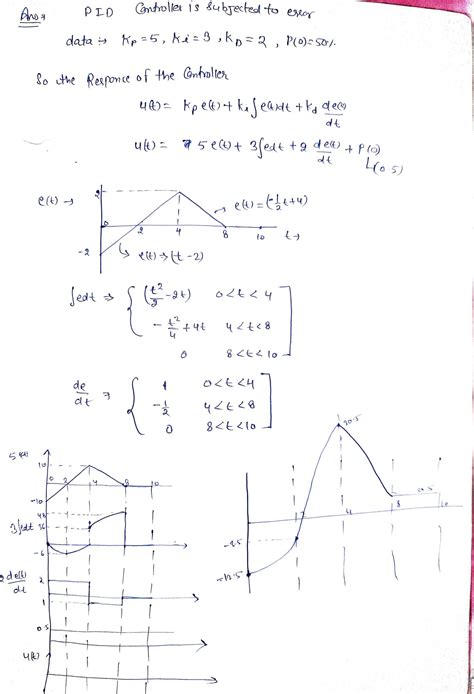 Ans→ PID Controller is Subjected to error
data :→ Kp=5, Ki=3, KD=2, P(0)=50%.
So the Responce of the Controller
u(t) = Kp e(t) + Ki ∫e(t)dt + Kd de(t)/dt
u(t) = 5 e(t) + 3∫edt + 2 de(t)/dt + P(0)
↳(0.5)
e(t) →
2
0
-2
2
4
8
10
t→
→ e(t) = (-1/2 t+4)
↳ e(t) → (t-2)
∫edt ⇒ { (t²/2 - 2t) 0<t<4
- t²/4 + 4t 4<t<8
0 8<t<10 ]
de/dt ⇒ { 1 0<t<4
-1/2 4<t<8
0 8<t<10 ]
5 e(t)
10
0
2
4
8
10
-10
48
3∫edt 36
-6
2 de(t)/dt
2
1
0.5
u(t)
30.5
0.5
2
4
8
10
-2.5